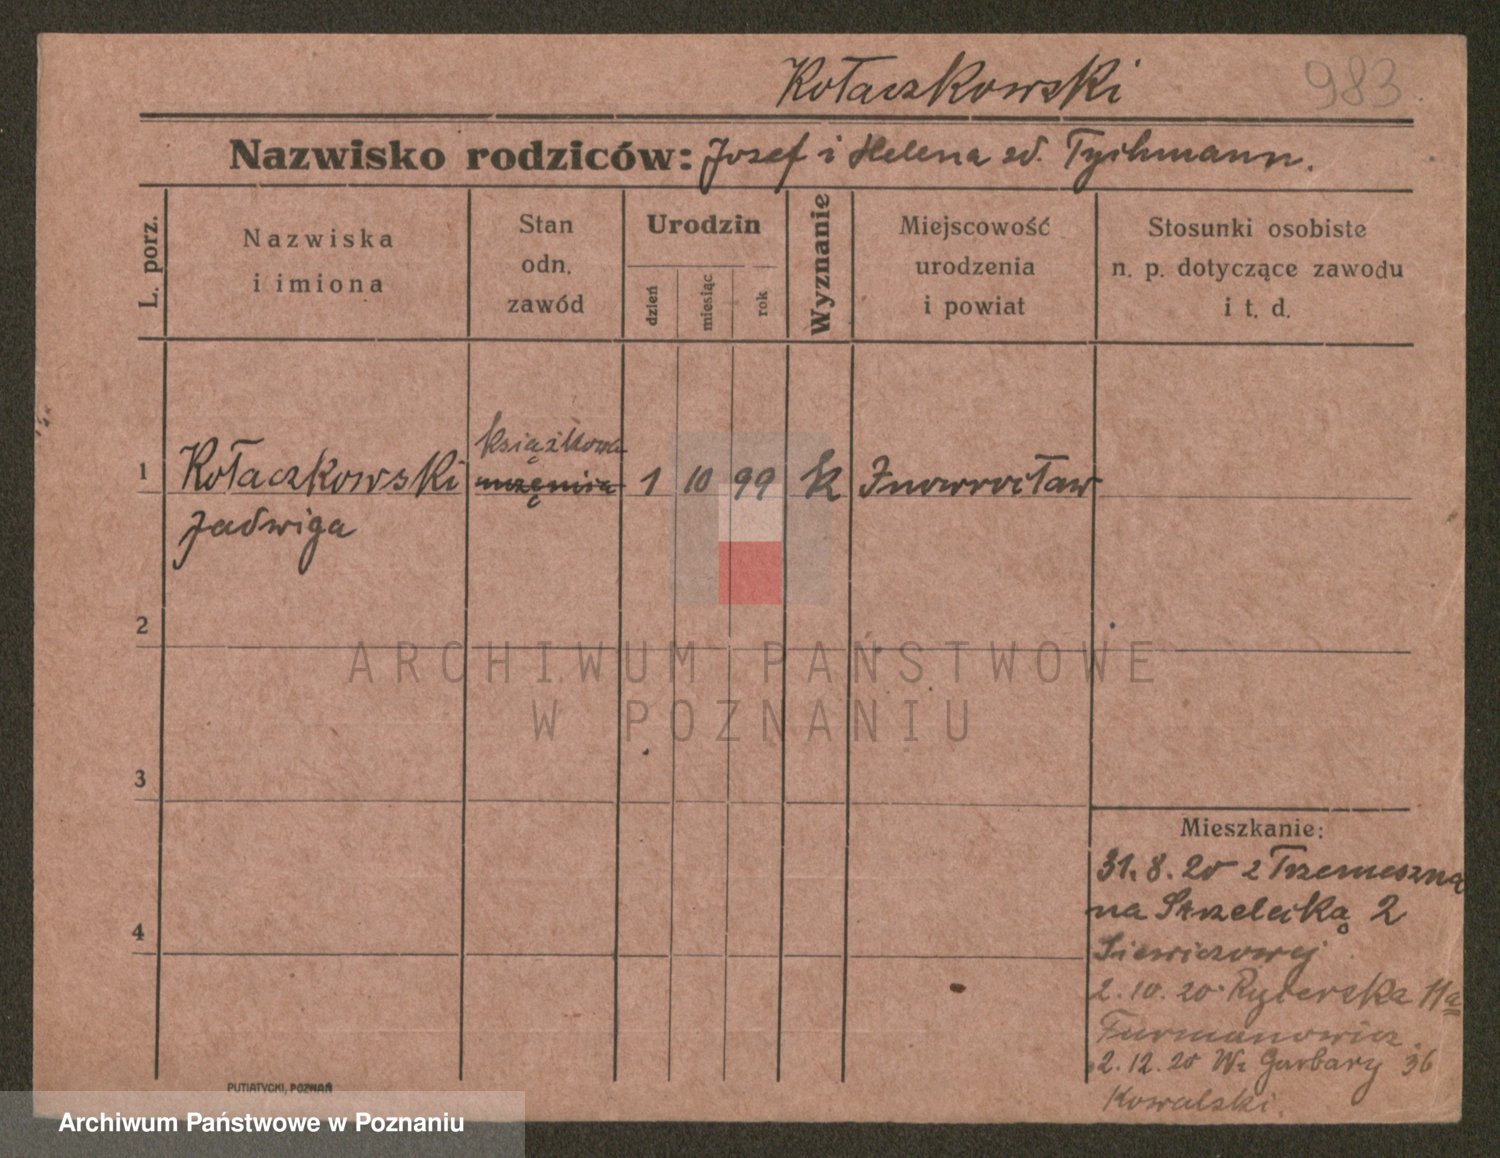 Kołaczkowski 983
Nazwisko rodziców: Josef i Helena zd. Tychmann.
L. porz.
Nazwiska
i imiona
Stan
odn.
zawód
Urodzin
dzień
miesiąc
rok
Wyznanie
Miejscowość
urodzenia
i powiat
Stosunki osobiste
n. p. dotyczące zawodu
i t. d.
książkowa
1 Kołaczkowski 1 10 99 k Inowrocław
Jadwiga
2
ARCHIWUM PAŃSTWOWE
W POZNANIU
3
Mieszkanie:
31.8.20 z Trzemeszna
na Strzelecką 2
4
Siewiczowej
2.10.20 Rycerska 11a
Furmanowicz
2.12.20 W. Garbary 36
Kowalski.
PUTIATYCKI, POZNAŃ
Archiwum Państwowe w Poznaniu